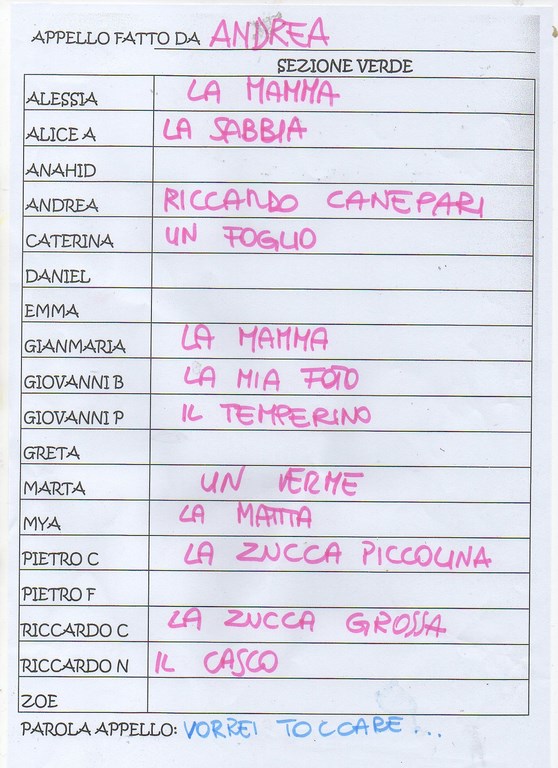 APPELLO FATTO DA ANDREA
SEZIONE VERDE
ALESSIA LA MAMMA
ALICE A LA SABBIA
ANAHID
ANDREA RICCARDO CANEPARI
CATERINA UN FOGLIO
DANIEL
EMMA
GIANMARIA LA MAMMA
GIOVANNI B LA MIA FOTO
GIOVANNI P IL TEMPERINO
GRETA
MARTA UN VERME
MYA LA MATITA
PIETRO C LA ZUCCA PICCOLINA
PIETRO F
RICCARDO C LA ZUCCA GROSSA
RICCARDO N IL CASCO
ZOE
PAROLA APPELLO: VORREI TOCCARE...